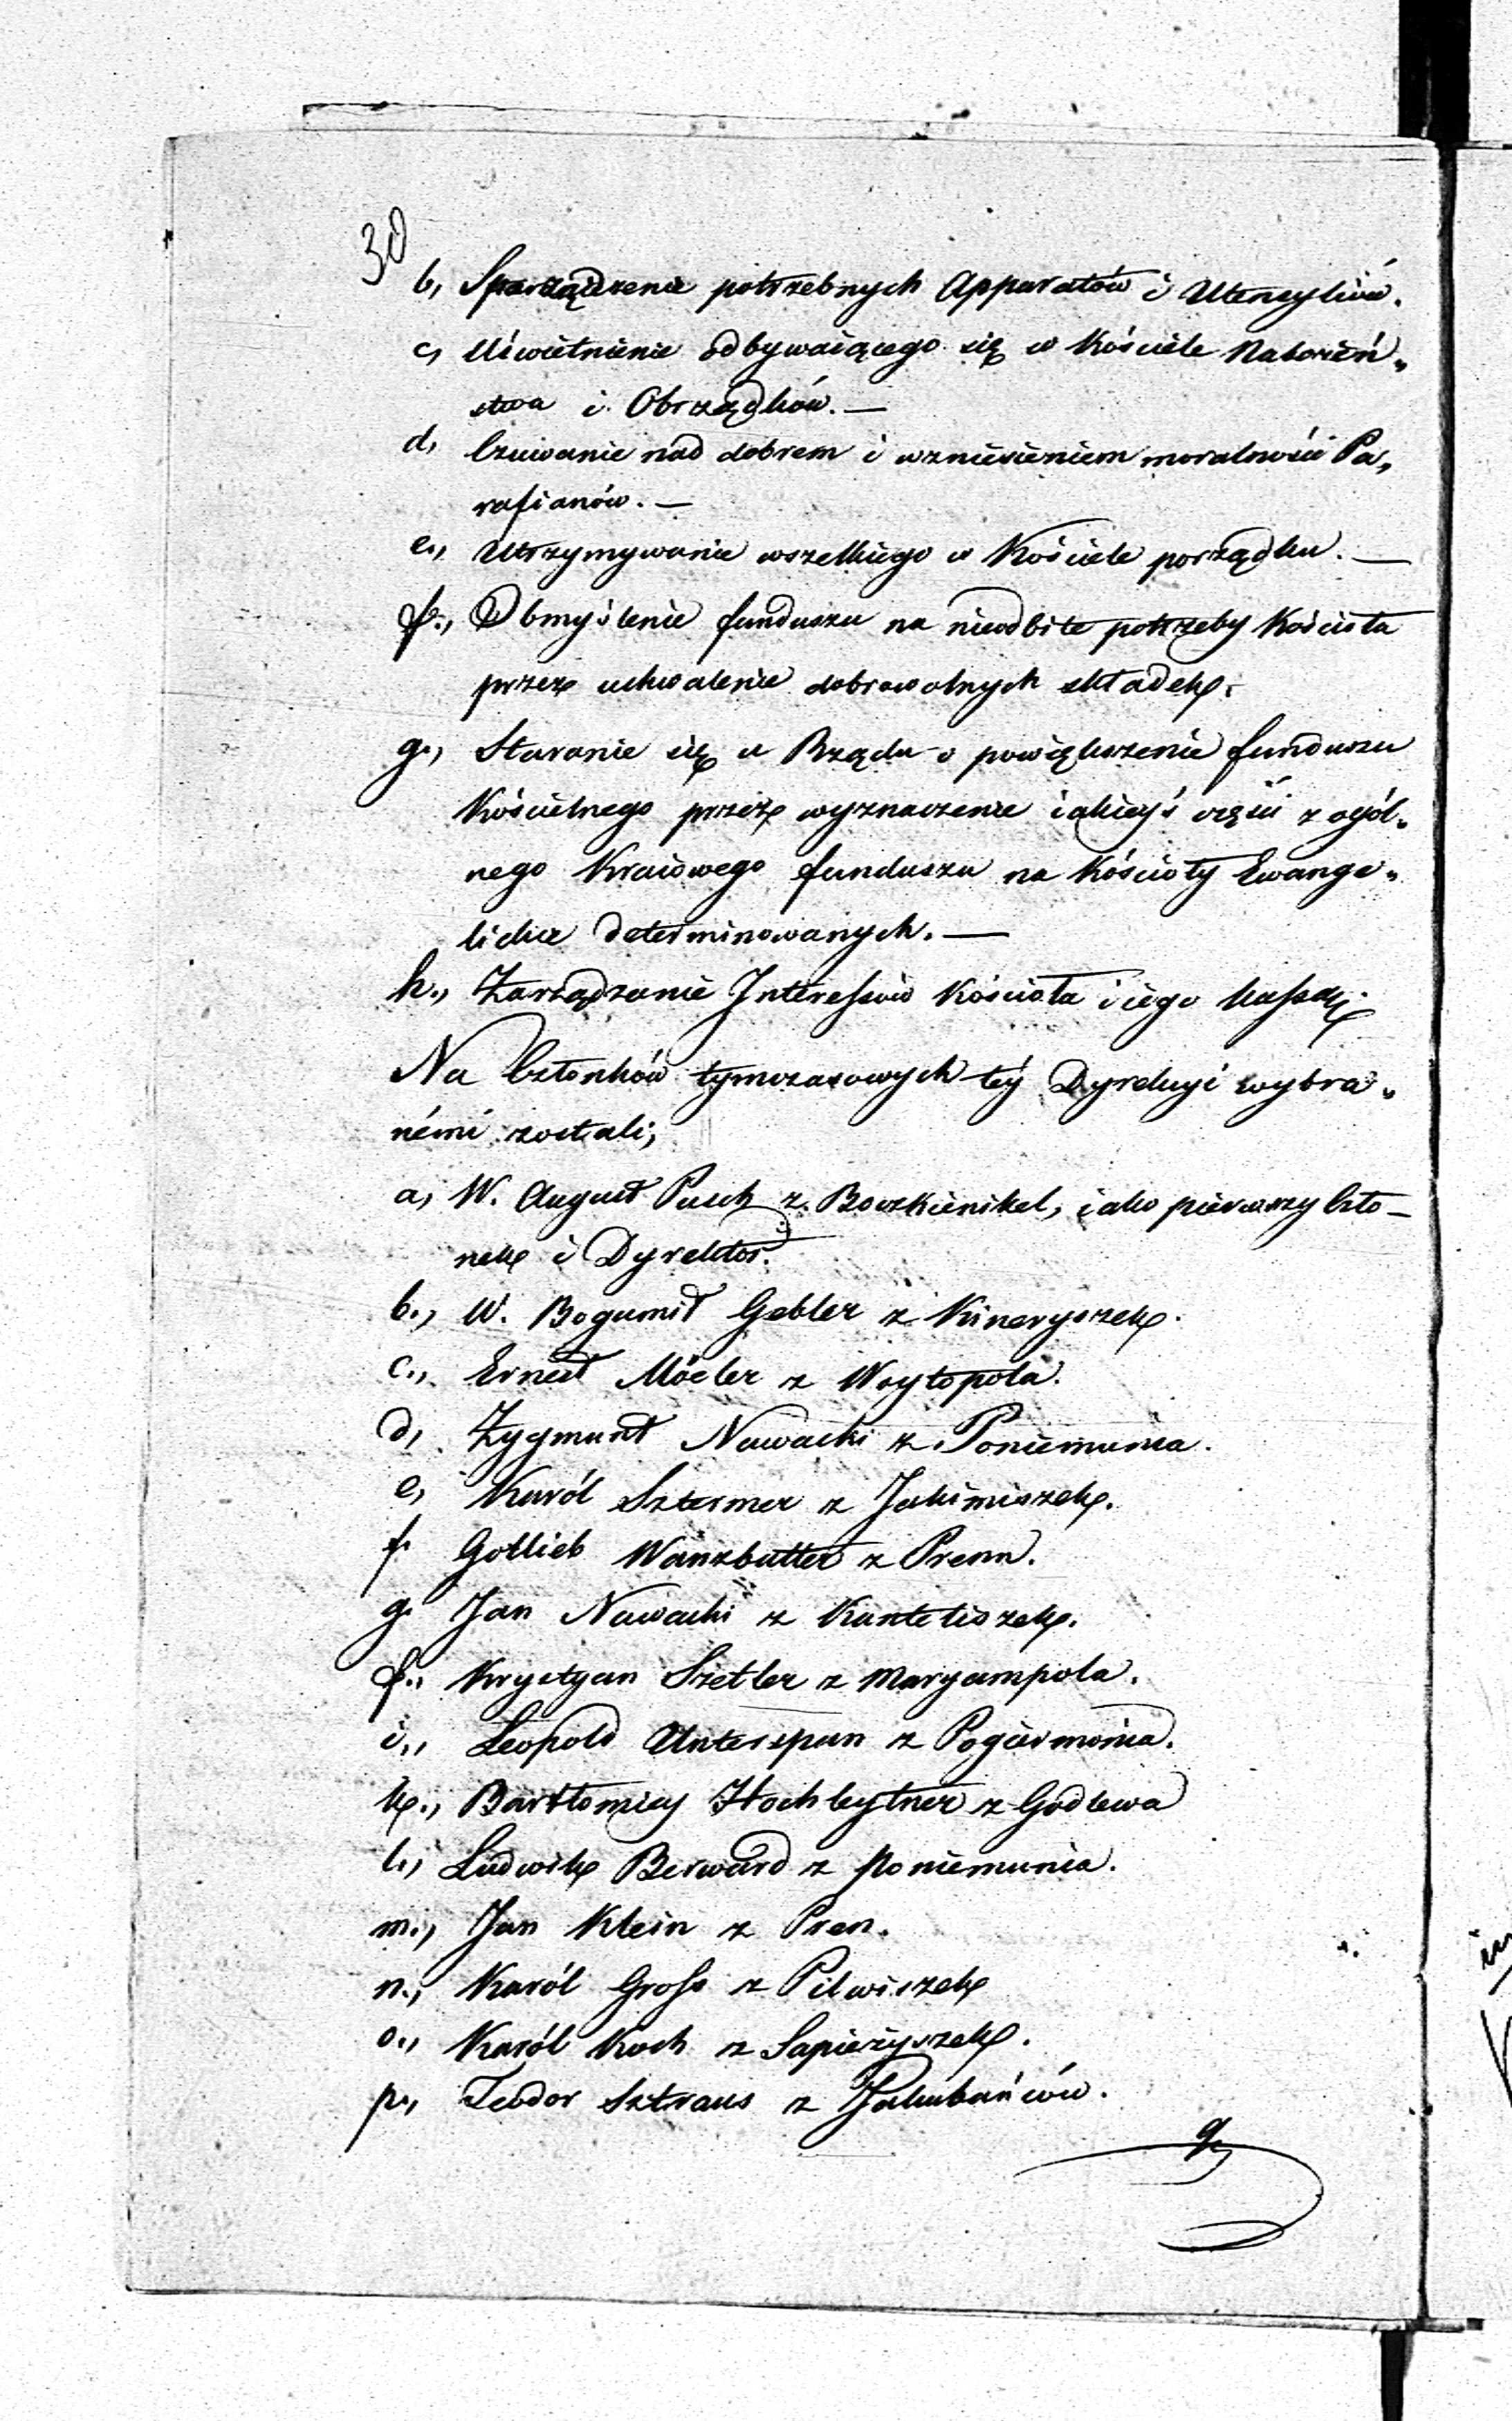 30
b, Sporządzenie potrzebnych Apparatów i Utensyliów.
c, Uświetnienie odbywaiącego się w Kościele Nabożeń„
stwa i Obrządków. —
d, Czuwanie nad dobrem i wzniesieniem moralności Pa„
rafianów. —
e., Utrzymywanie wszelkiego w Kościele porządku. —
f., Obmyślenie funduszu na nieodbite potrzeby Kościoła
przez uchwalenie dobrowolnych składek.
g., Staranie się u Rządu o powiększenie funduszu
Kościelnego przez wyznaczenie iakieyś części z ogól„
nego Kraiowego funduszu na Kościoły Ewange„
lickie determinowanych. —
h., Zarządzanie Interessów Kościoła i iego Kassą.
Na Członków tymczasowych téy Dyrekcyi wybra„
némi zostali,
a, W. August Pusch z Boczkienikel, iako pierwszy Czło–
nek i Dyrektor.
b., W. Bogumił Gebler z Kineryszek.
c., Ernest Möeler z Woytopola.
d, Zygmunt Nawacki z Poniemunia.
e, Karól Sztermer z Jakimiszek.
f. Gotlieb Wanzbutter z Prenn.
g. Jan Nawacki z Kunteliszek.
h., Krystyan Szetler z Maryampola.
i., Leopold Unterspan z Pogiermonia.
k., Bartłomiey Hochleytner z Godlewa
l., Ludwik Berward z Poniemunia.
m., Jan Klein z Pren.
n., Karól Gross z Pilwiszek
o., Karól Koch z Sapieżyszek.
p., Teodor Sztraus z Jakubańców.
q,